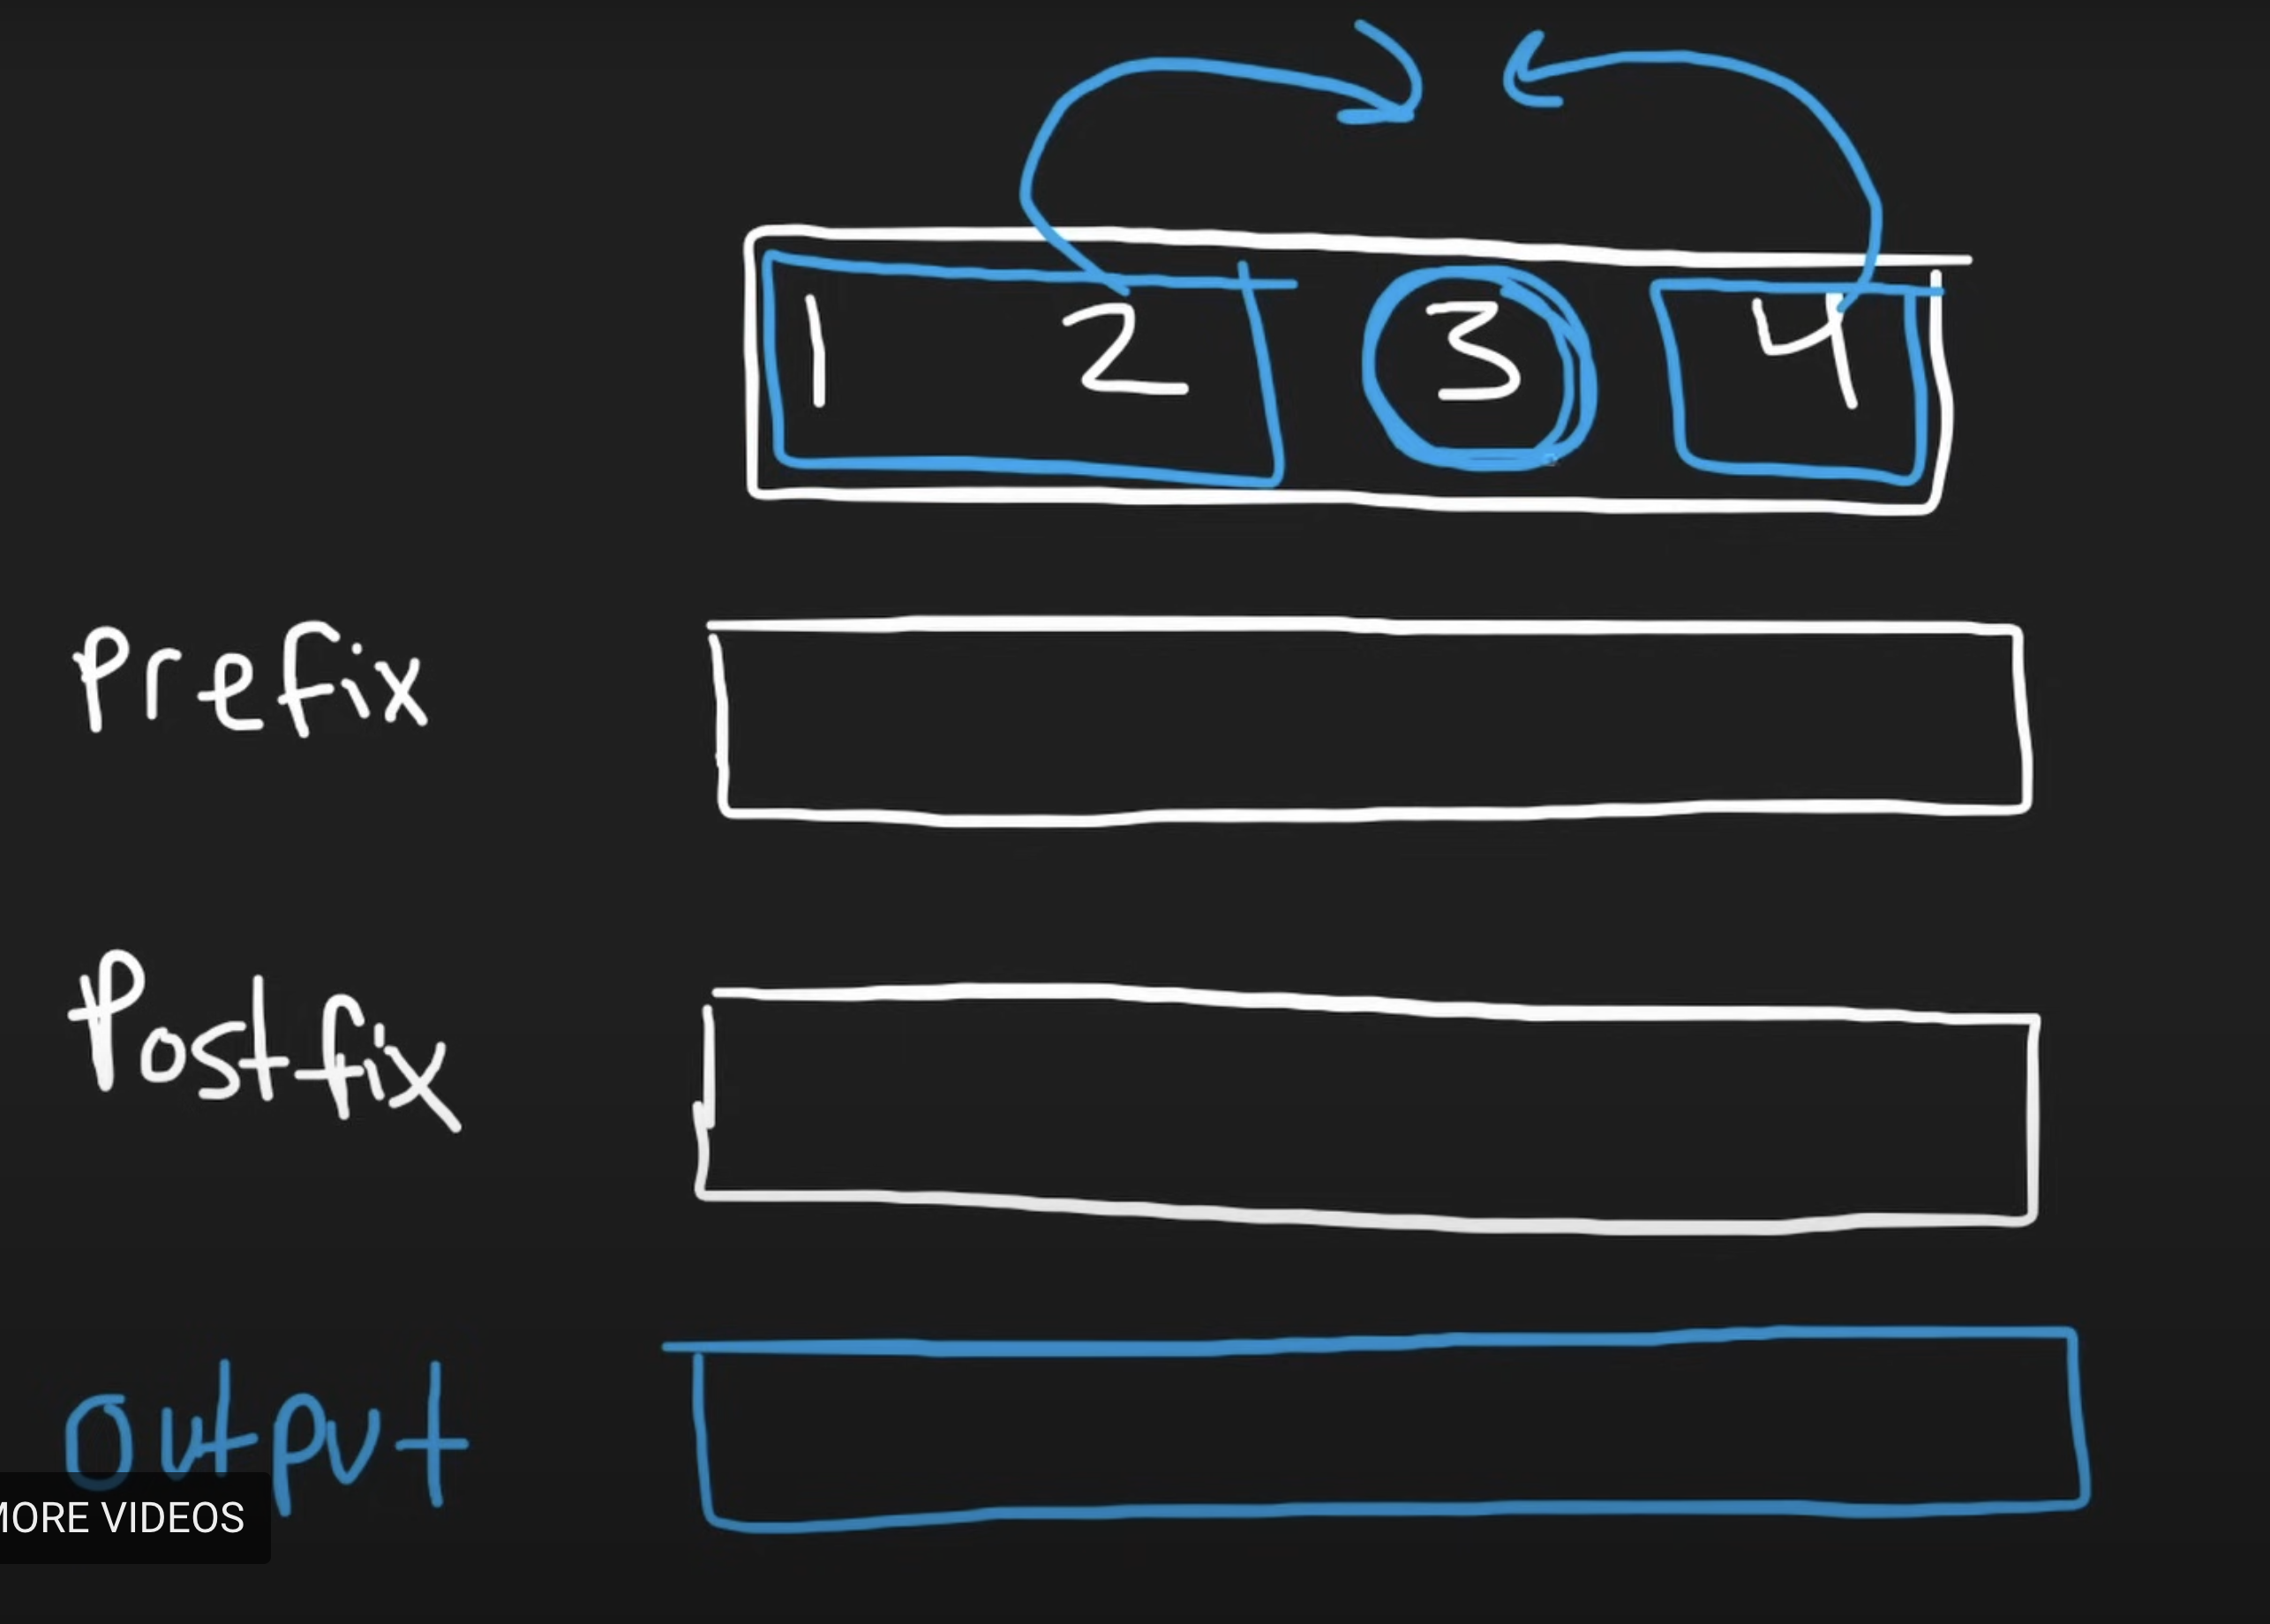 1 2 3 4
Prefix
Postfix
Output
MORE VIDEOS